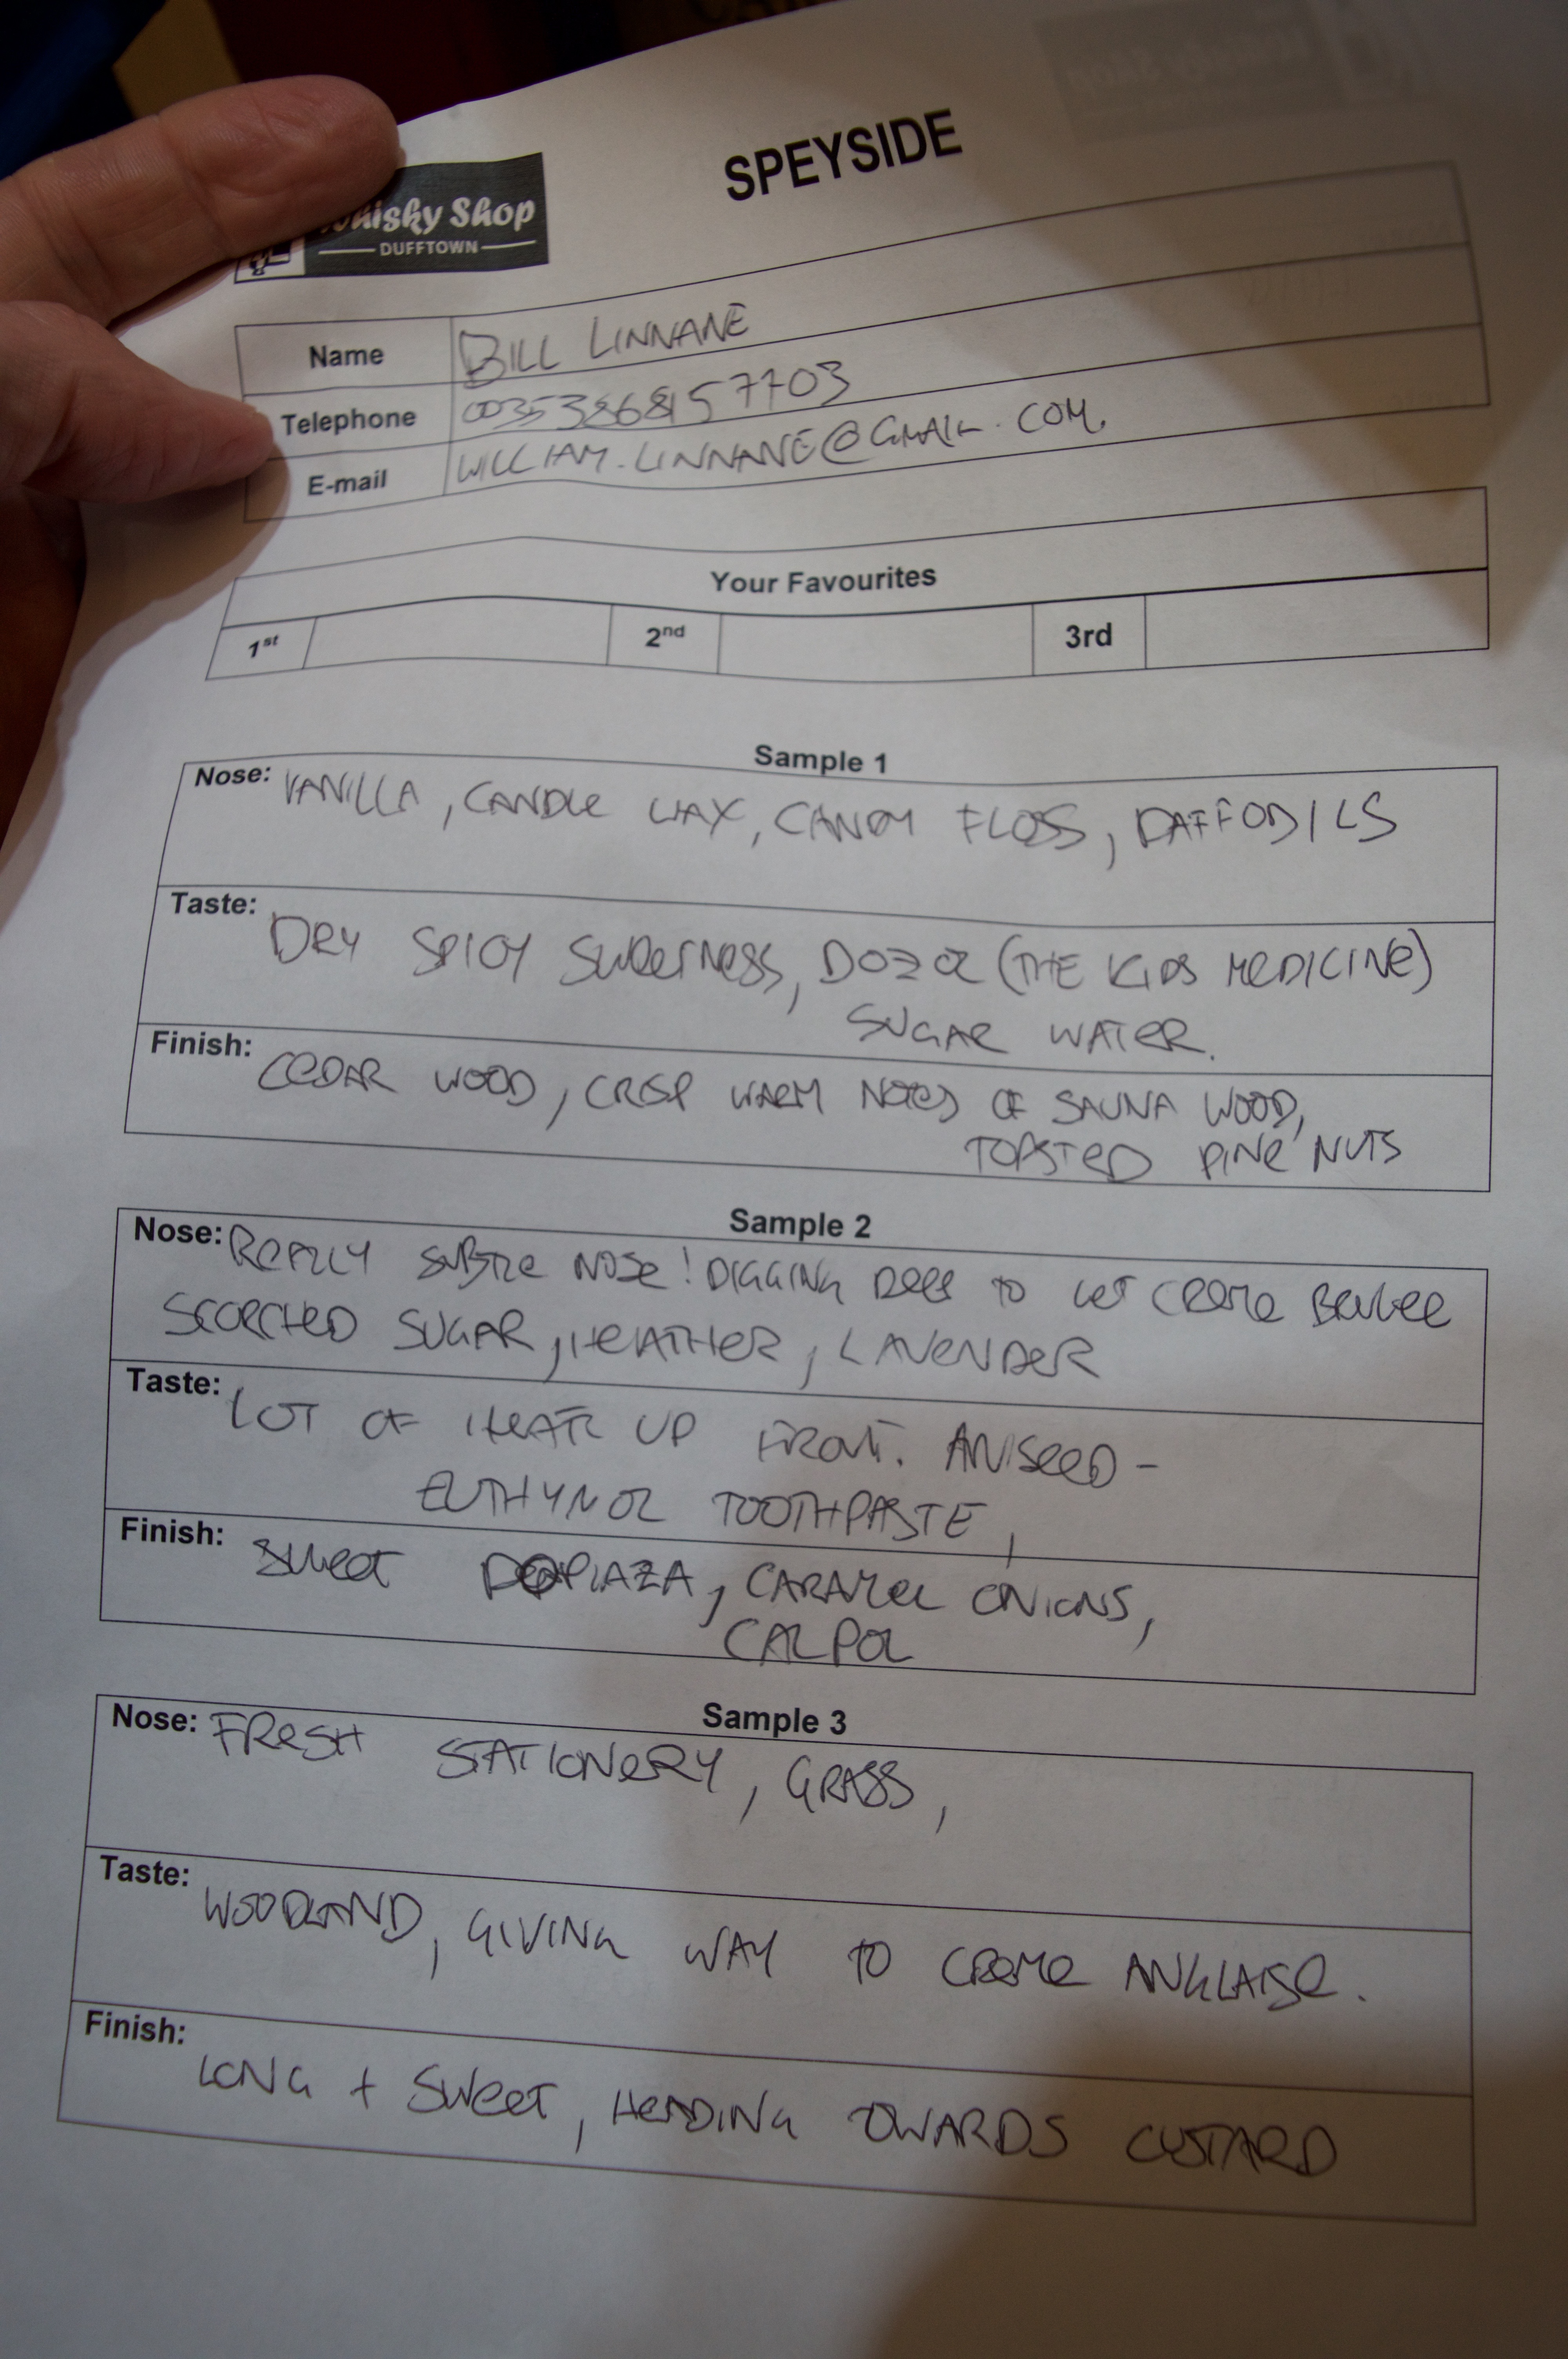 SPEYSIDE
Whisky Shop
DUFFTOWN
Name BILL LINNANE
Telephone 00353868157703
E-mail WILLIAM.LINNANE@GMAIL.COM.
Your Favourites
1st 2nd 3rd
Sample 1
Nose: VANILLA, CANDLE WAX, CANDY FLOSS, DAFFODILS
Taste: DRY SPICY SWEETNESS, DOZOL (THE KIDS MEDICINE)
SUGAR WATER.
Finish: CEDAR WOOD, CRISP WARM NOTES OF SAUNA WOOD,
TOASTED PINE NUTS
Sample 2
Nose: REALLY SUBTLE NOSE! DIGGING DEEP TO GET CREME BRULEE
SCORCHED SUGAR, HEATHER, LAVENDER
Taste: LOT OF HEAT UP FRONT. ANISEED -
EUTHYMOL TOOTHPASTE,
Finish: SWEET DOPIAZA, CARAMEL ONIONS,
CALPOL
Sample 3
Nose: FRESH STATIONERY, GRASS,
Taste: WOODLAND, GIVING WAY TO CREME ANGLAISE.
Finish: LONG + SWEET, HEADING TOWARDS CUSTARD